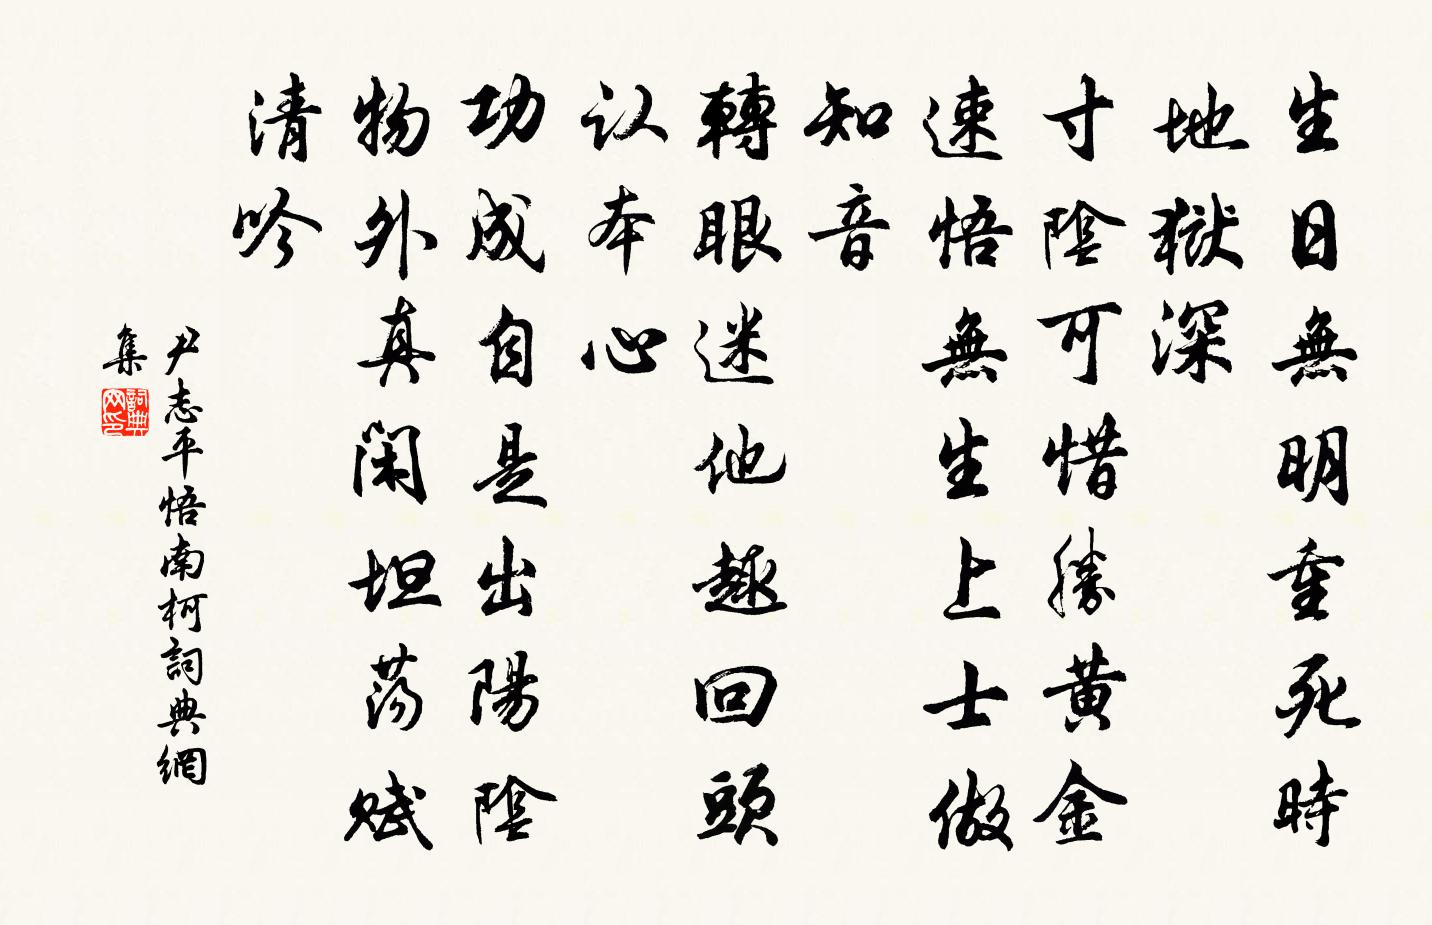 生日無明重死時
地獄深
寸陰可惜勝黃金
速悟無生上士做
知音
轉眼迷他趣回頭
认本心
功成自是出陽陰
物外真閑坦蕩賦
清吟
尹志平悟南柯詞典網
集
詞典网印